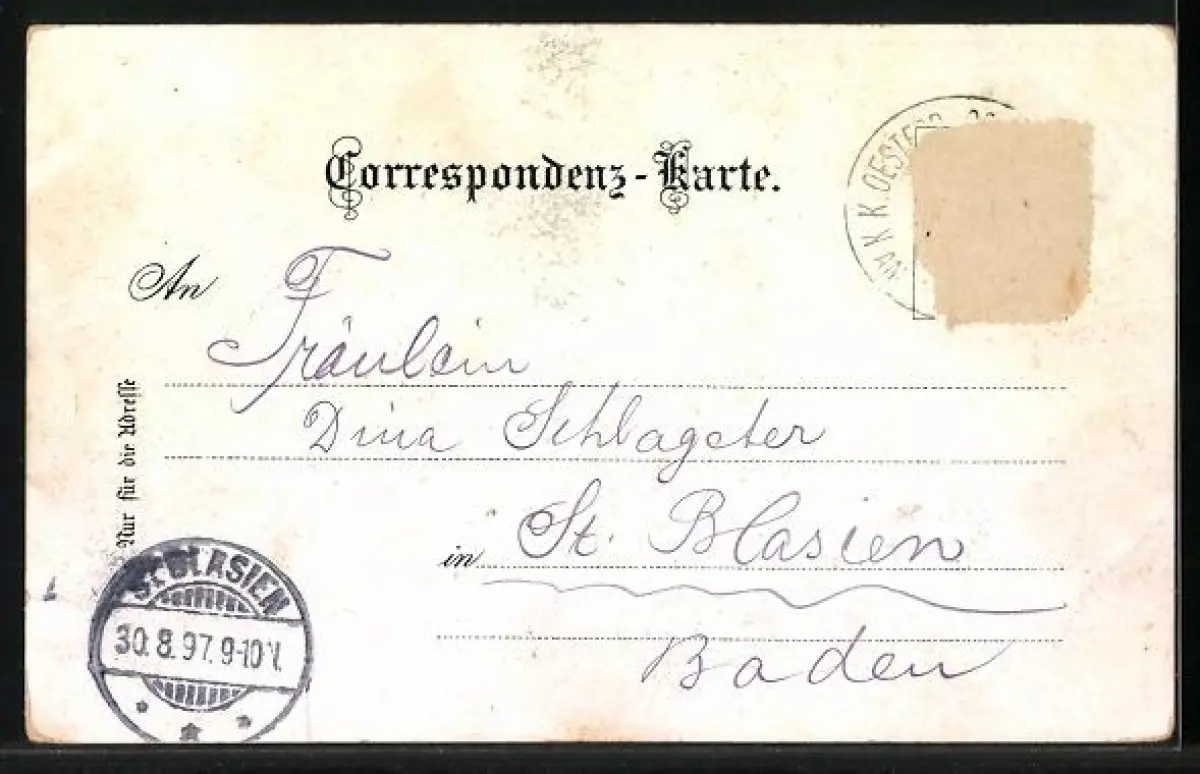 Correspondenz-Karte.
K.K.OESTERR
An Fräulein
Dina Schlageter
in St. Blasien
Baden
Nur für die Adresse
ST BLASIEN
30.8.97.9-10V.